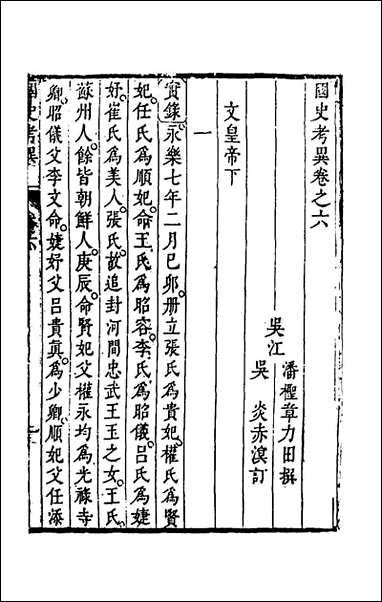 國史考異卷之六
吳江
潘檉章力田撰
吳炎赤溟訂
文皇帝下
一
實錄永樂七年二月己卯册立張氏為貴妃權氏為賢
妃任氏為順妃命王氏為昭容李氏為昭儀呂氏為婕
妤崔氏為美人張氏故追封河間忠武王玉之女王氏
蘇州人餘皆朝鮮人庚辰命賢妃父權永均為光祿寺
卿昭儀父李文命婕妤父呂貴真為少卿順妃父任添
國史考異
卷之六
一